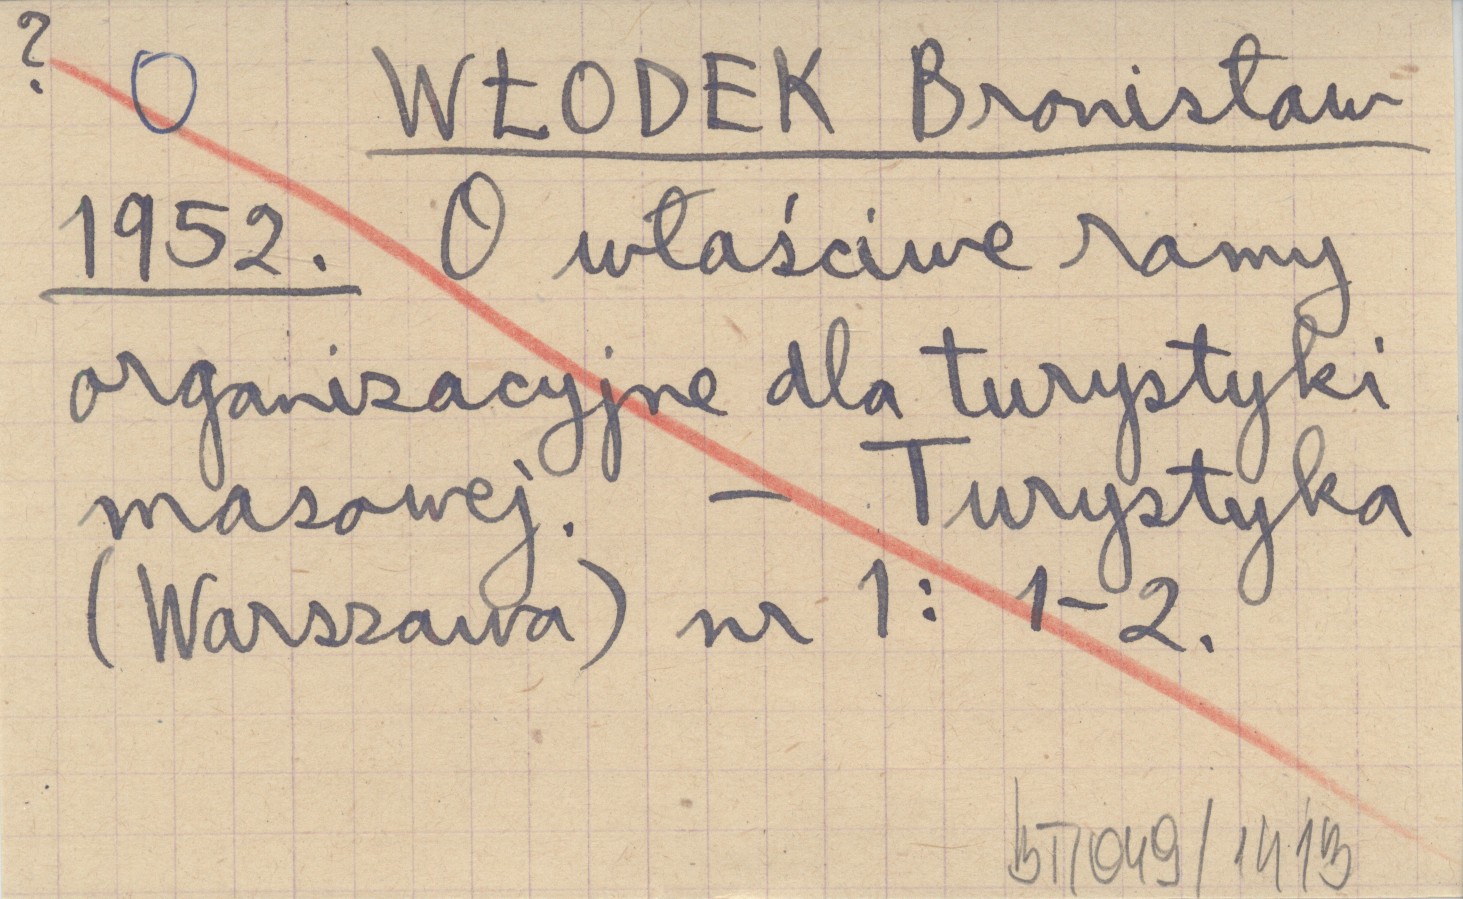 ? O WŁODEK Bronisław
1952. O właściwe ramy
organizacyjne dla turystyki
masowej. – Turystyka
(Warszawa) nr 1: 1–2.